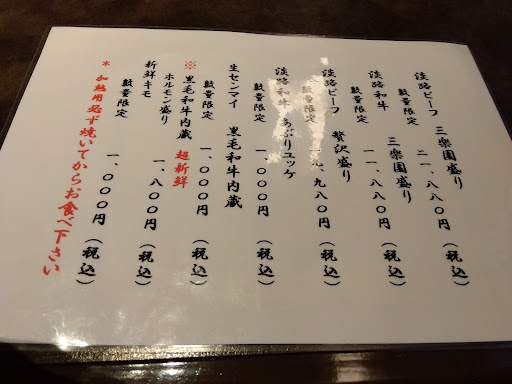 淡路ビーフ 三楽園盛り
数量限定 二一、八八〇円(税込)
淡路和牛 三楽園盛り
数量限定 一一、八八〇円(税込)
淡路ビーフ 贅沢盛り
数量限定 (税込)
淡路和牛 あぶりユッケ
数量限定 一、〇〇〇円(税込)
生センマイ 黒毛和牛内蔵
数量限定 一、〇〇〇円(税込)
※黒毛和牛内蔵 超新鮮
ホルモン盛り 一、八〇〇円(税込)
新鮮キモ
数量限定 一、〇〇〇円(税込)
*加熱用必ず焼いてからお食べ下さい